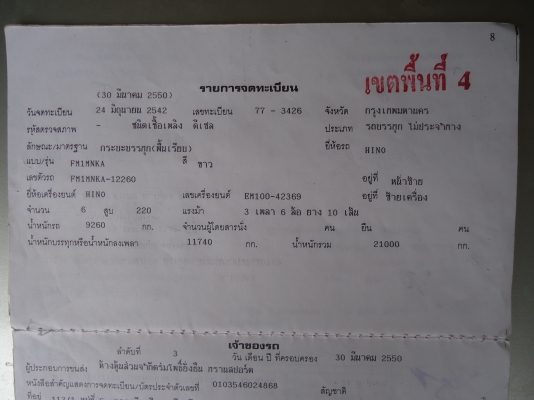 8
รายการจดทะเบียน
เขตพื้นที่ 4
(30 มีนาคม 2550)
วันจดทะเบียน 24 มิถุนายน 2542 เลขทะเบียน 77 - 3426 จังหวัด กรุงเทพมหานคร
รหัสตรวจสภาพ - ชนิดเชื้อเพลิง ดีเซล ประเภท รถบรรทุก ไม่ประจำทาง
ลักษณะ/มาตรฐาน กระบะบรรทุก(พื้นเรียบ) ยี่ห้อรถ HINO
แบบ/รุ่น FM1MNKA สี ขาว
เลขตัวรถ FM1MNKA-12260 อยู่ที่ หน้าซ้าย
ยี่ห้อเครื่องยนต์ HINO เลขเครื่องยนต์ EM100-42369 อยู่ที่ ซ้ายเครื่อง
จำนวน 6 สูบ 220 แรงม้า 3 เพลา 6 ล้อ ยาง 10 เส้น
น้ำหนักรถ 9260 กก. จำนวนผู้โดยสารนั่ง คน ยืน คน
น้ำหนักบรรทุกหรือน้ำหนักลงเพลา 11740 กก. น้ำหนักรวม 21000 กก.
เจ้าของรถ
ลำดับที่ 3 วัน เดือน ปี ที่ครอบครอง 30 มีนาคม 2550
ผู้ประกอบการขนส่ง ห้างหุ้นส่วนจำกัดร่มโพธิ์ยั่งยืน ทรานสปอร์ต
หนังสือสำคัญแสดงการจดทะเบียน/บัตรประจำตัวเลขที่ 0103546024868 สัญชาติ
ที่อยู่